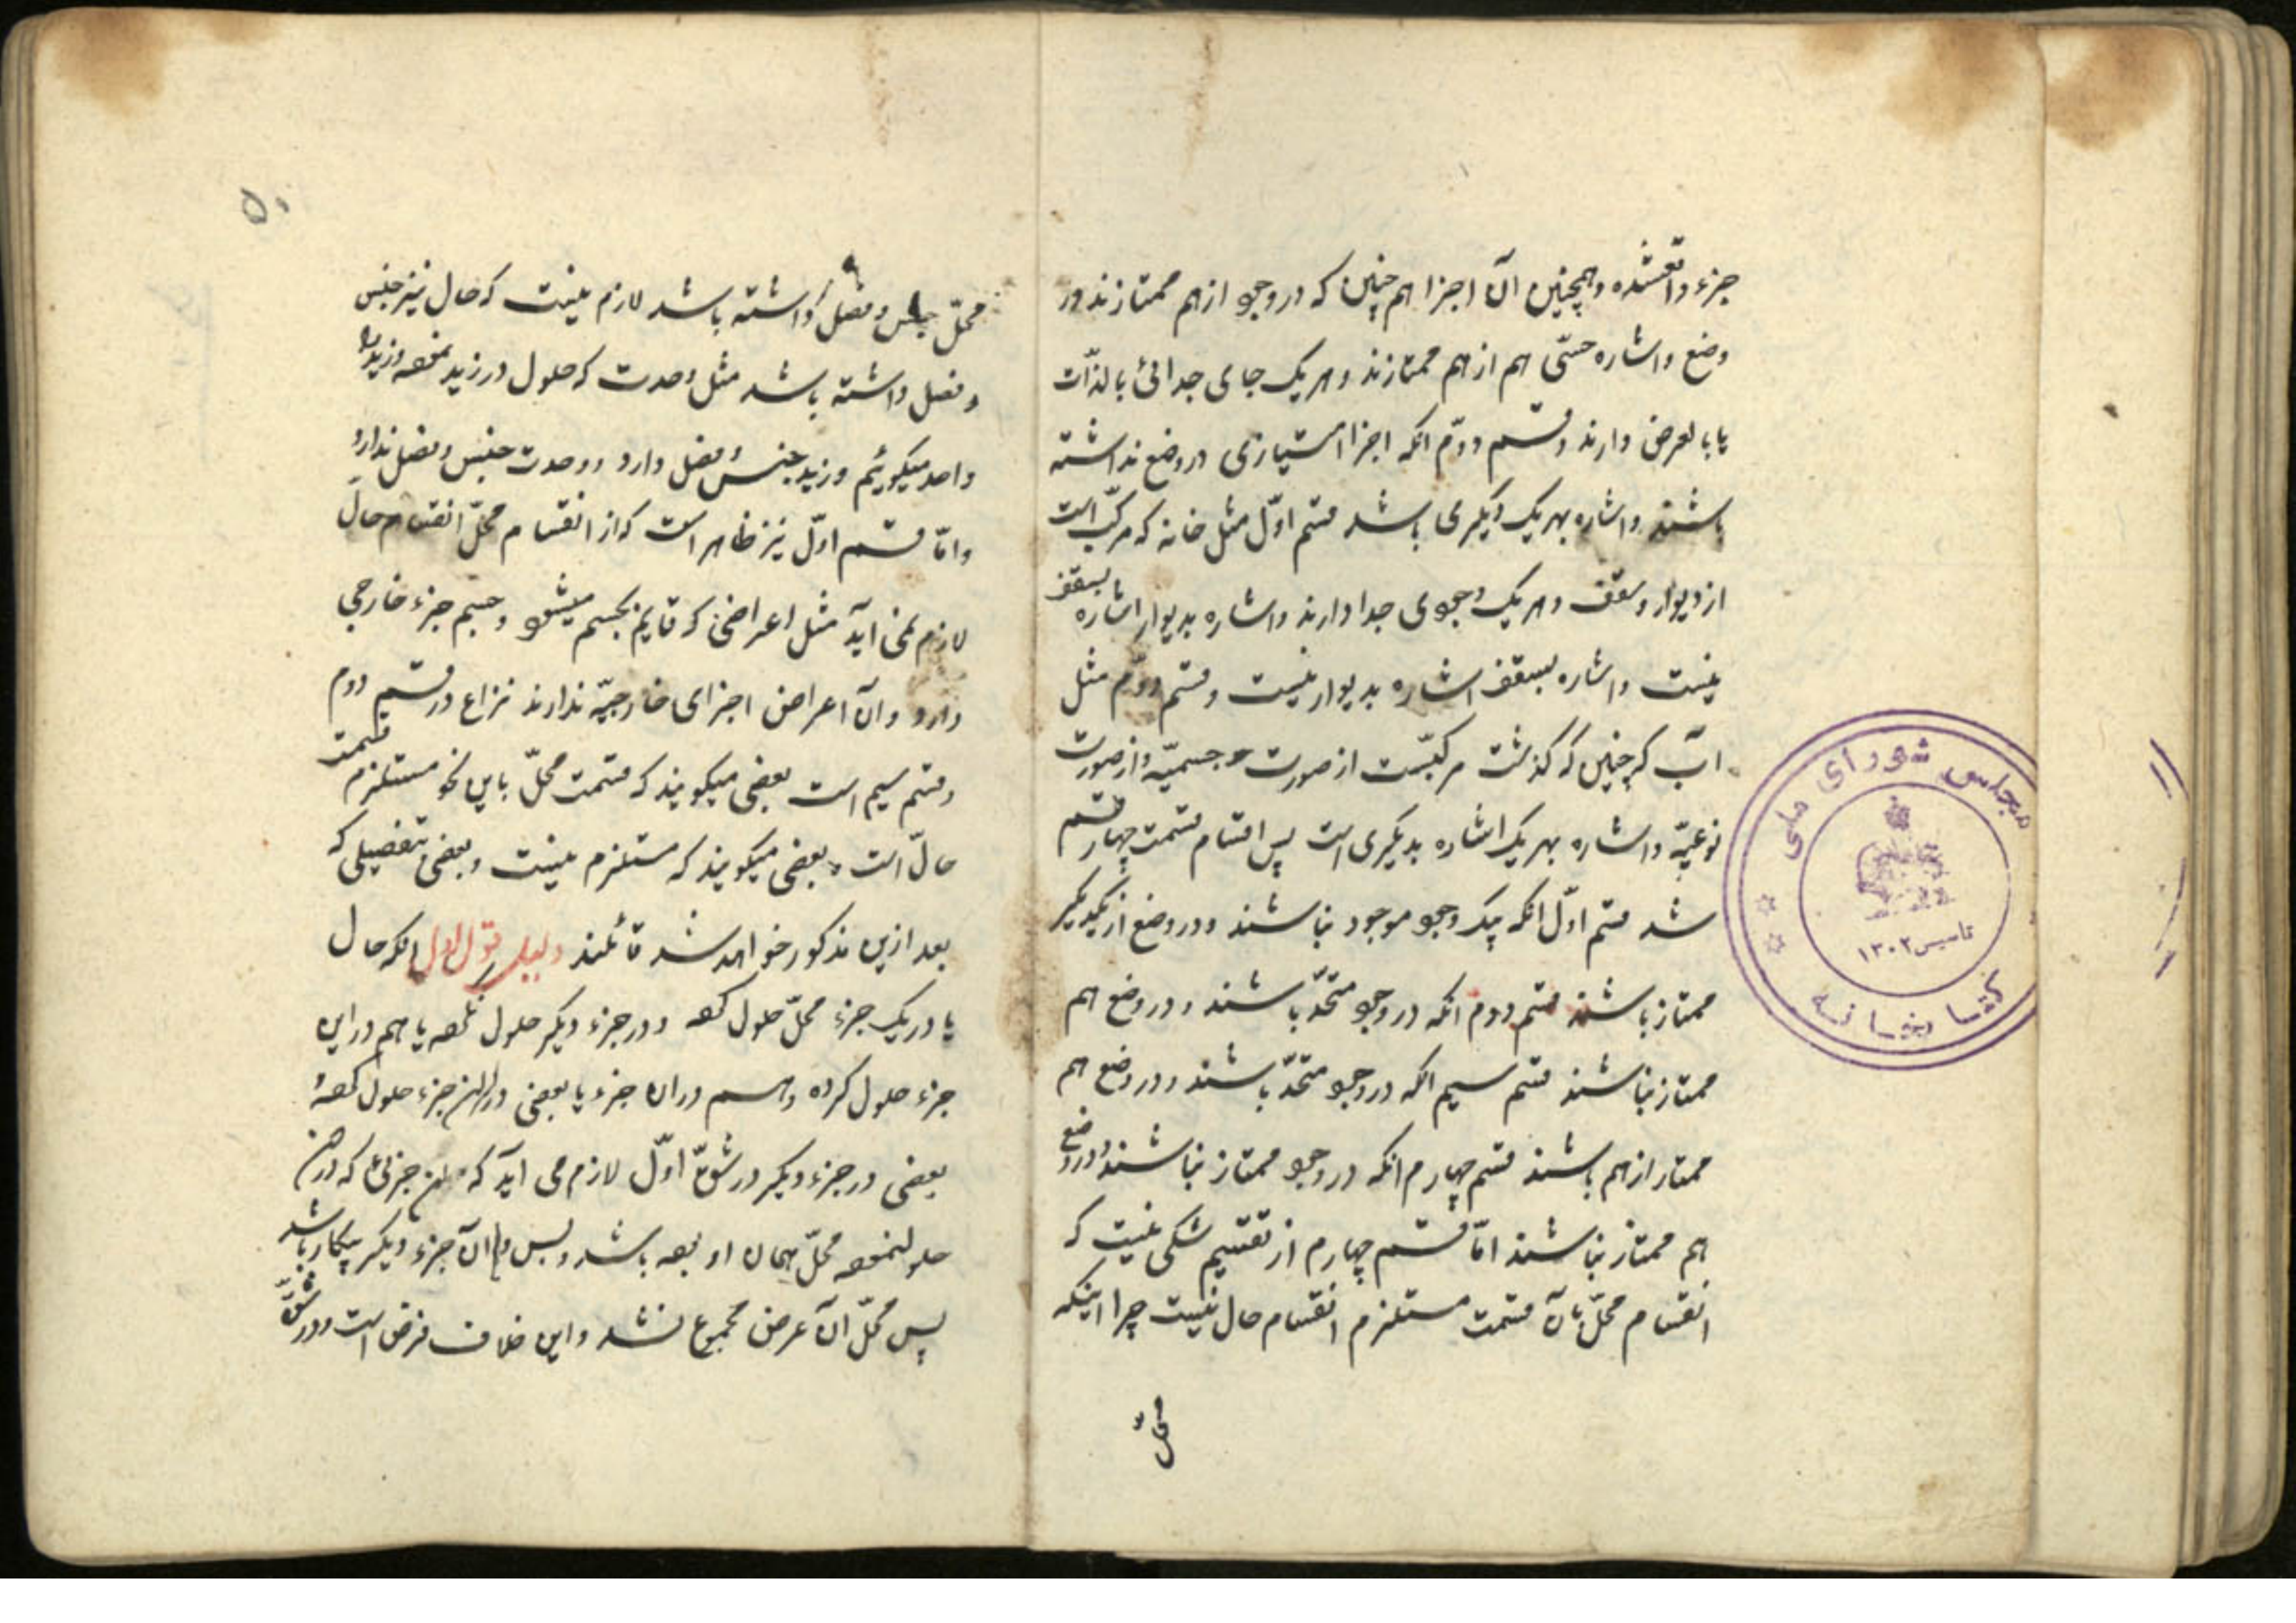 جزء واقعشده وهمچنین آن اجزا هم چنین که در وجو از هم ممتازند در
وضع واشاره حسّی هم از هم ممتازند وهر یک جای جدائی بالذّات
یا بالعرض دارند وقسم دوّم انکه اجزا امتیازی در وضع نداشته
باشند واشاره بهر یک دیگری باشد قسم اوّل مثل خانه که مرکّب است
از دیوار وسقف وهر یک وجوی جدا دارند واشاره بدیوار اشاره بسقف
نیست واشاره بسقف اشاره بدیوار نیست وقسم دوّم مثل
اب که چنین که گذشت مرکبّست از صورت جسمیّه واز صورت
نوعیّه واشاره بهر یک اشاره بدیگری است پس اقسام قسمت چهار قسم
شد قسم اوّل انکه بیک وجو موجود نباشند ودر وضع از یکدیگر
ممتاز باشند قسم دوم انکه در وجو متحّد باشند ودر وضع هم
ممتاز نباشند قسم سیم انکه در وجو متحّد باشند ودر وضع هم
ممتاز از هم باشند قسم چهارم انکه در وجو ممتاز نباشند ودر وضع
هم ممتاز نباشند امّا قسم چهارم از تقسیم شکی نیست که
انقسام محلّ بآن قسمت مستلزم انقسام حال نیست چرا اینکه
محلّ
۵۰
محلّ جنس وفصل داشته باشد لازم نیست که حال نیز جنس
وفصل داشته باشد مثل وحدت که حلول در زید نمعه وزید را
واحد میکوئیم وزید جنس وفصل دارد ووحدت جنس وفصل ندارد
وامّا قسم اوّل نیز ظاهر است که از انقسام محلّ انقسام حالّ
لازم نمی آید مثل اعراضی که قایم بجسم میشو وجسم جزء خارجی
دارد وآن اعراض اجزای خارجیّه ندارند نزاع در قسم دوم
وقسم سیم است بعضی میکویند که قسمت محلّ باین نحو مستلزم قسمت
حالّ است وبعضی میکویند که مستلزم نیست وبعضی بتفصیلی که
بعد ازین مذکور خواهد شد قائلند دلیل قول اول انکه حال
یا در یک جزء محلّ حلول کعه ودر جزء دیکر حلول نکعه یا هم در این
جزء حلول کرده وهم در ان جزء یا بعضی در این جزء حلول کعه و
بعضی در جزء دیکر در شقّ اوّل لازم می اید که این جزئی که در آن
حلولنمعه محلّ همان او بعه باشد وبس وان آن جزء دیکر بیکار باشد
پس محلّ آن عرض مجموع نشد واین خلاف فرض است ودر شقّ
مجلس شورای ملی
تاسیس ۱۳۰۲
کتابخانه